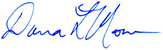 Dana L Moore